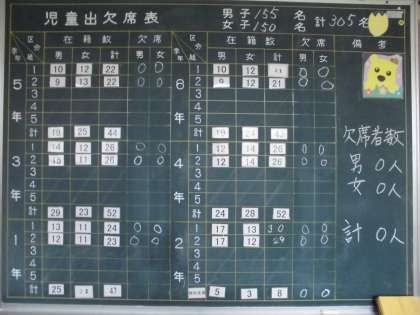 児童出欠席表 男子155名 女子150名 計305名
学年 区分 組 在籍数 欠席 学年 区分 組 在籍数 欠席 備考
男 女 計 男 女 男 女 計 男 女
5年 1 10 12 22 0 0 6年 1 10 12 0 0
2 9 13 22 0 0 2 9 12 21 0 0
3 3
4 4
5 5
計 19 25 44 計 19 24 43
3年 1 14 12 26 0 0 4年 1 12 14 26 0 0
2 15 11 26 0 0 2 12 14 26 0 0
3 3
4 4
5 5
計 29 23 52 計 24 28 52
1年 1 13 11 24 0 0 2年 1 17 13 30 0 0
2 12 11 23 0 0 2 17 12 29 0 0
3 3
4 4
5 5
計 25 47 5 3 8 0 0
欠席者数
男 0人
女 0人
計 0人